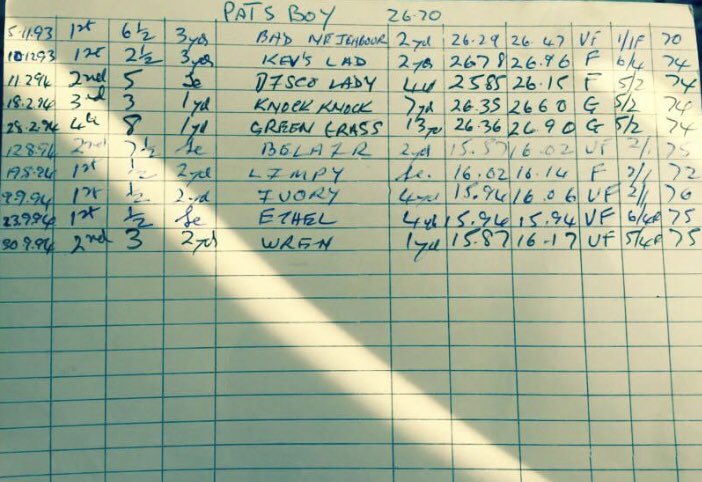 PATS BOY 26.70
5.11.93 1st 6½ 3yds BAD NEIGHBOUR 2yd 26.29 26.47 VF 1/1F 70
10.12.93 1st 2½ 3yds KEV'S LAD 2yds 26.78 26.96 F 6/4 74
11.2.94 2nd 5 Sc DISCO LADY 4yd 25.85 26.15 F 5/2 74
18.2.94 3rd 3 1yd KNOCK KNOCK 7yd 26.35 26.60 G 5/2 74
25.2.94 4th 8 1yd GREEN GRASS 13yd 26.36 26.90 G 5/2 74
12.8.94 2nd 7½ Sc BELAIR 2yd 15.57 16.02 VF 2/1 75
19.8.94 1st ½ 2yd LIMPY Sc. 16.02 16.14 F 2/1 72
9.9.94 1st ½ 2yd IVORY 4yd 15.94 16.06 VF 2/1 76
23.9.94 1st ½ Sc ETHEL 4yd 15.94 15.94 VF 75
30.9.94 2nd 3 2yd WREN 1yd 15.87 16.17 VF 75